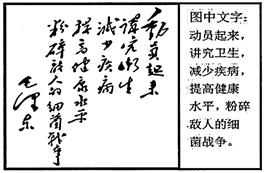 动員起来
講究衛生
減少疾病
提高健康水平
粉碎敌人的细菌戰争
毛泽东
图中文字：
动员起来，
讲究卫生，
减少疾病，
提高健康
水平，粉碎
敌人的细
菌战争。